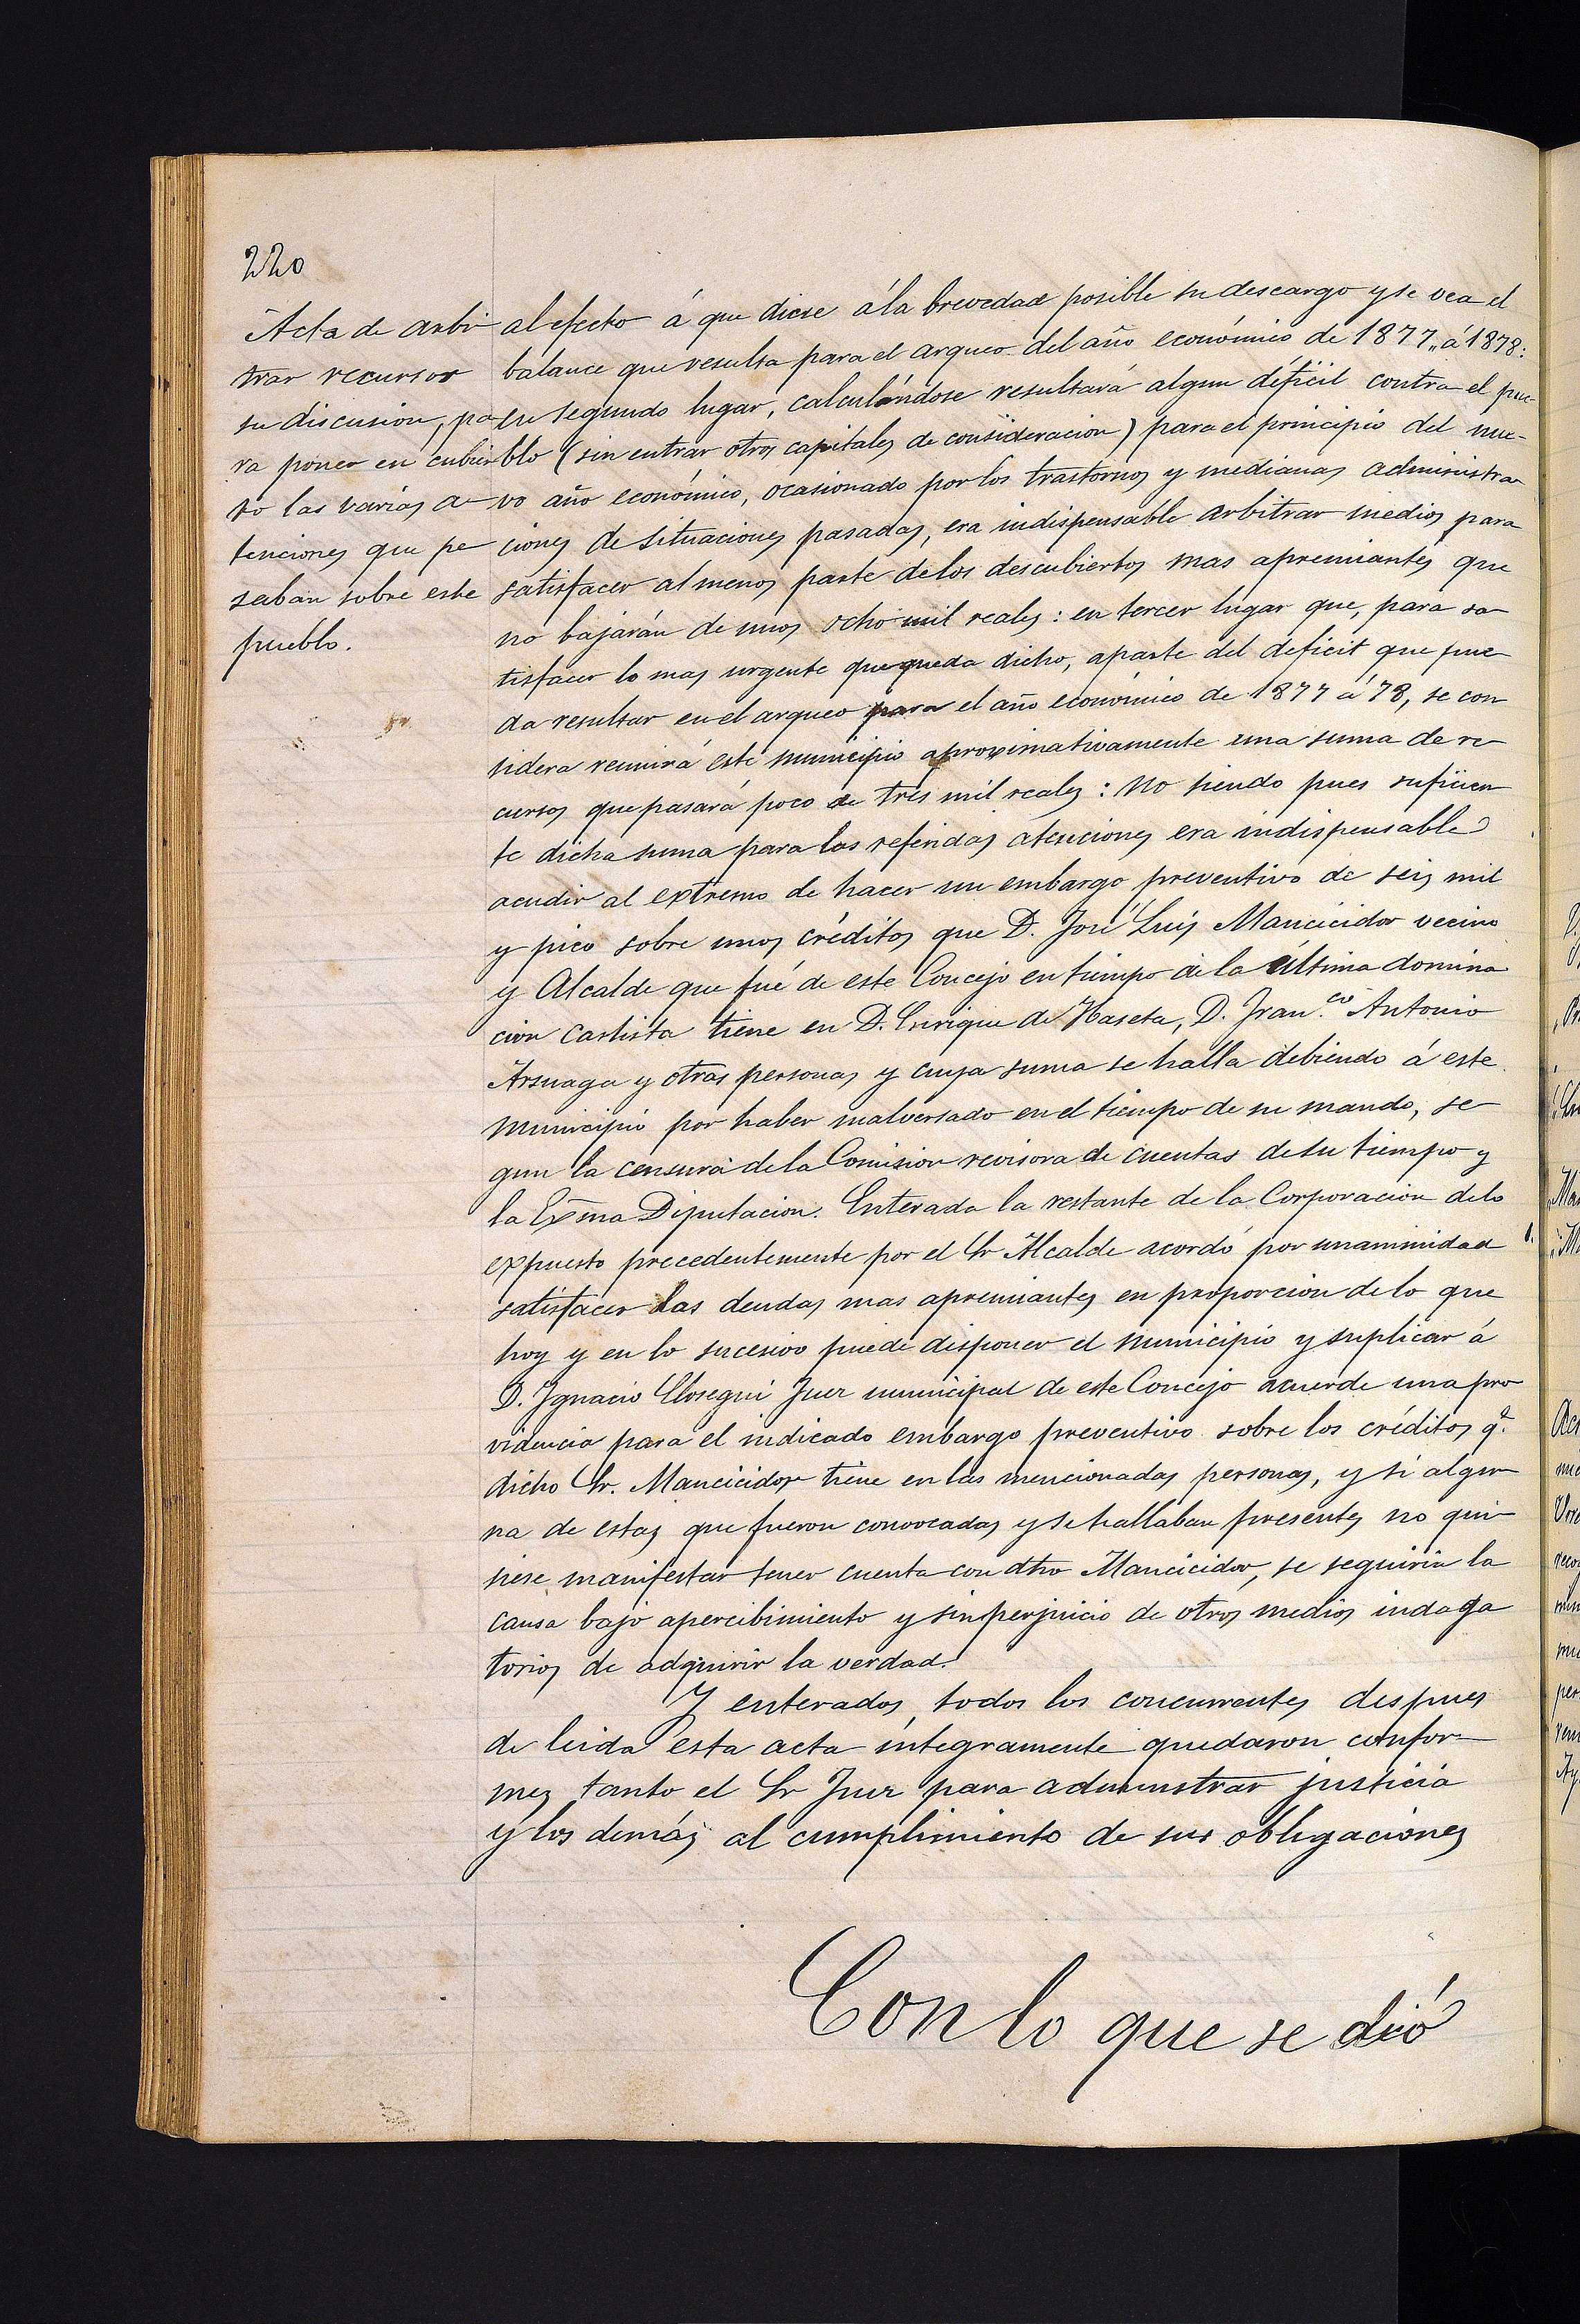 220
Acta de arbi-
trar recursos
su discusion, pa-
ra poner en cubier-
to las varias a-
tenciones que pe-
saban sobre este
pueblo.
al efecto á que diese á la brevedad posible su descargo y se vea el
balance que resulta para el arqueo del año económico de 1877 „ á 1878:
en segundo lugar, calculándose resultará algun déficit contra el pue-
blo (sin entrar otros capitales de consideracion) para el principio del nue-
vo año económico, ocasionado por los trastornos y medianas administra-
ciones de situaciones pasadas, era indispensable arbitrar medios para
satisfacer al menos parte de los descubiertos mas apremiantes que
no bajarán de unos ocho mil reales: en tercer lugar que, para sa-
tisfacer lo mas urgente que queda dicho, aparte del deficit que pue-
da resultar en el arqueo para el año económico de 1877 á 78, se con
sidera reunirá este municipio aproximativamente una suma de re-
cursos que pasará poco de tres mil reales: No siendo pues suficien-
te dicha suma para las referidas atenciones era indispensable
acudir al extremo de hacer un embargo preventivo de seis mil
y pico sobre unos créditos que D. José Luis Mancicidor vecino
y Alcalde que fué de este Concejo en tiempo de la última domina
cion carlista tiene en D. Enrique de Haseta, D. Fran.co Antonio
Arsuaga y otras personas y cuya suma se halla debiendo á este
municipio por haber malversado en el tiempo de su mando, se-
gun la censura de la Comision revisora de cuentas de su tiempo y
la Exma Diputacion. Enterada la restante de la Corporacion de lo
expuesto precedentemente por el Sr Alcalde acordó por unanimidad
satisfacer las deudas mas apremiantes en proporcion de lo que
hoy y en lo sucesivo puede disponer el municipio y suplicar á
D. Ygnacio Elosegui Juez municipal de este Concejo acuerde una pro
videncia para el indicado embargo preventivo sobre los créditos q.e
dicho Sr. Mancicidor tiene en las mencionadas personas, y si algu-
na de estas que fueron convocadas y se hallaban presentes no qui-
siese manifestar tener cuenta con dho Mancicidor, se seguiria la
causa bajo apercibimiento y sin perjuicio de otros medios indaga
torios de adquirir la verdad.
Y enterados, todos los concurrentes despues
de leida esta acta íntegramente quedaron confor-
mes tanto el Sr Juez para administrar justicia
y los demás al cumplimiento de sus obligaciones
Con lo que se dió